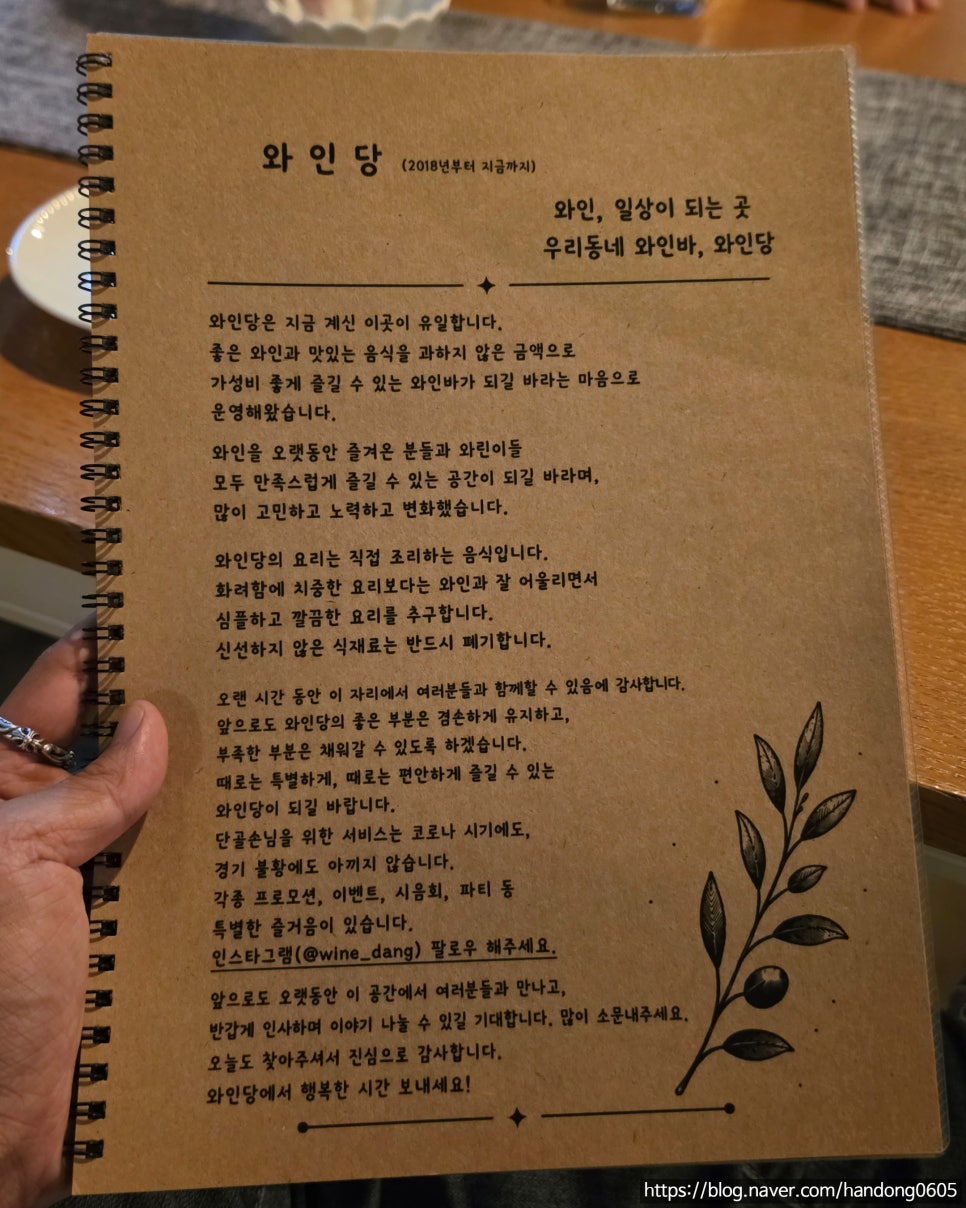 와인당 (2018년부터 지금까지)
와인, 일상이 되는 곳
우리동네 와인바, 와인당
와인당은 지금 계신 이곳이 유일합니다.
좋은 와인과 맛있는 음식을 과하지 않은 금액으로
가성비 좋게 즐길 수 있는 와인바가 되길 바라는 마음으로
운영해왔습니다.
와인을 오랫동안 즐겨온 분들과 와린이들
모두 만족스럽게 즐길 수 있는 공간이 되길 바라며,
많이 고민하고 노력하고 변화했습니다.
와인당의 요리는 직접 조리하는 음식입니다.
화려함에 치중한 요리보다는 와인과 잘 어울리면서
심플하고 깔끔한 요리를 추구합니다.
신선하지 않은 식재료는 반드시 폐기합니다.
오랜 시간 동안 이 자리에서 여러분들과 함께할 수 있음에 감사합니다.
앞으로도 와인당의 좋은 부분은 겸손하게 유지하고,
부족한 부분은 채워갈 수 있도록 하겠습니다.
때로는 특별하게, 때로는 편안하게 즐길 수 있는
와인당이 되길 바랍니다.
단골손님을 위한 서비스는 코로나 시기에도,
경기 불황에도 아끼지 않습니다.
각종 프로모션, 이벤트, 시음회, 파티 등
특별한 즐거움이 있습니다.
인스타그램(@wine_dang) 팔로우 해주세요.
앞으로도 오랫동안 이 공간에서 여러분들과 만나고,
반갑게 인사하며 이야기 나눌 수 있길 기대합니다. 많이 소문내주세요.
오늘도 찾아주셔서 진심으로 감사합니다.
와인당에서 행복한 시간 보내세요!
https://blog.naver.com/handong0605